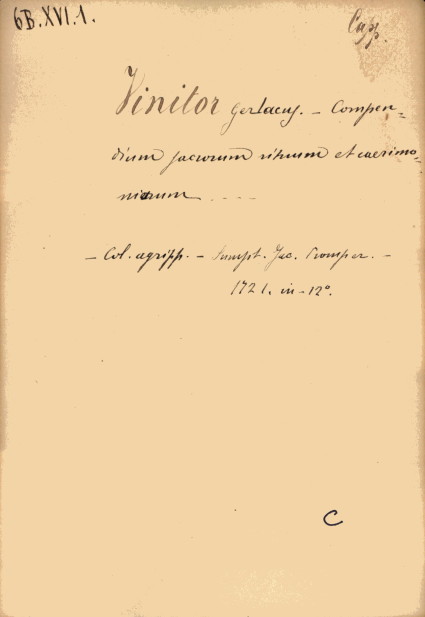 6B.XVI.1.
Capp.
Vinitor Gerlacus. - Compen-
dium sacrorum rituum et caerimo-
niarum ....
- Col. agripp. - Sumpt. Jac. Promper. -
1721. in-12°.
C